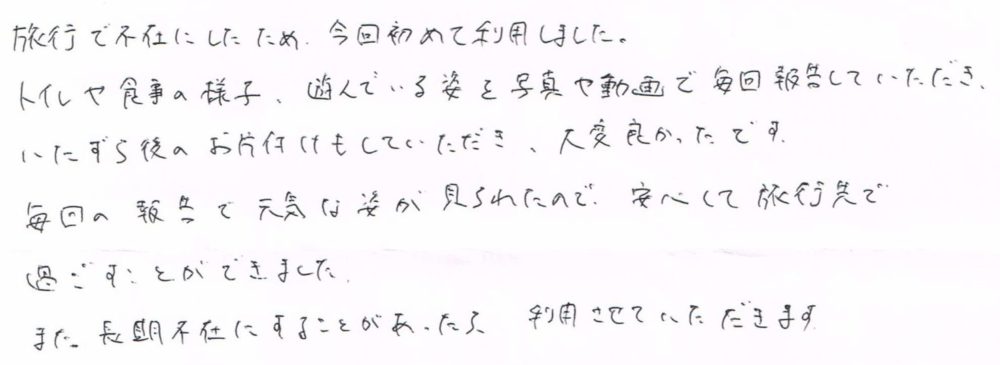 旅行で不在にしたため、今回初めて利用しました。
トイレや食事の様子、遊んでいる姿を写真や動画で毎回報告していただき、
いたずら後のお片付けもしていただき、大変良かったです。
毎回の報告で元気な姿が見られたので、安心して旅行先で
過ごすことができました。
また、長期不在にすることがあったら、利用させていただきます